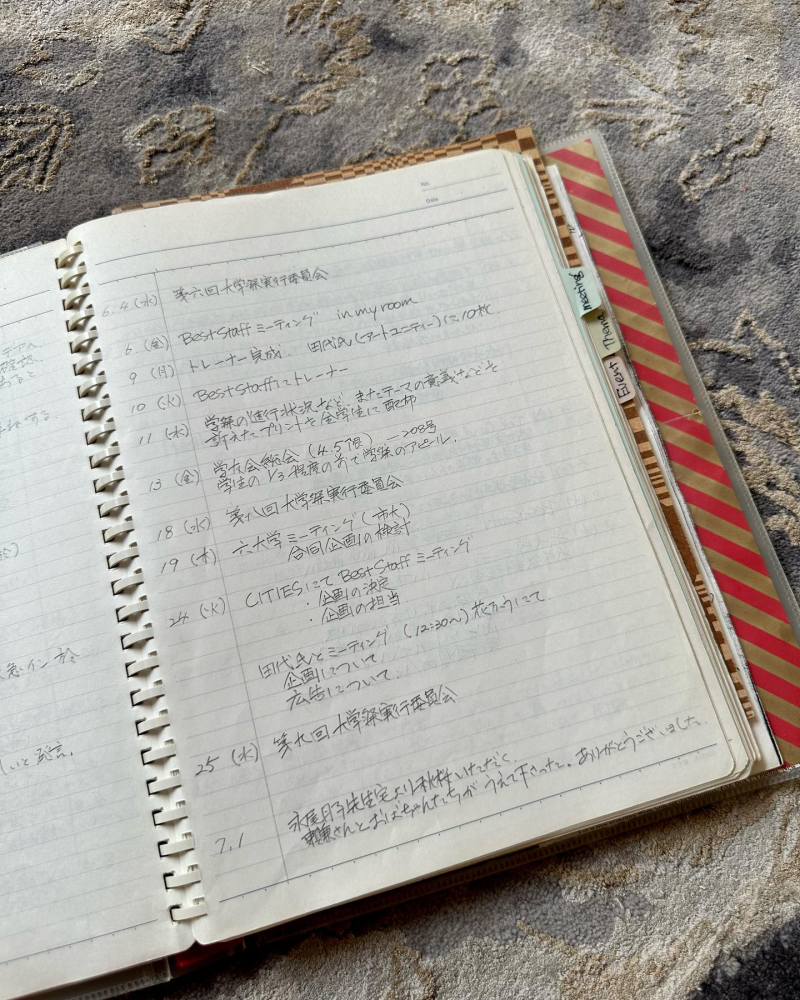 No.
Date
6.4 (水) 第六回大学祭実行委員会
6. (金) Best Staff ミーティング in my room
9 (月) トレーナー完成. 田代氏(アートユニティー)に10枚
10 (火) Best Staffにトレーナー
11 (水) 学祭の進行状況など、またテーマの意義などを
訴えたプリントを全学生に配布
13 (金) 学友会総会 (4.5限) — 208号
学生の1/3程度の前で学祭のアピール.
18 (水) 第八回大学祭実行委員会
19 (木) 六大学ミーティング (市大)
合同企画の検討
24 (火) CITIESにて Best Staff ミーティング
・企画の決定
・企画の担当
田代氏とミーティング (12:30〜) にて
企画について
広告について.
25 (水) 第九回大学祭実行委員会
7.1 先生宅より いただく.
さんとおばちゃんたちが うえて下さった。ありがとうございました.
meeting
Thema
Event